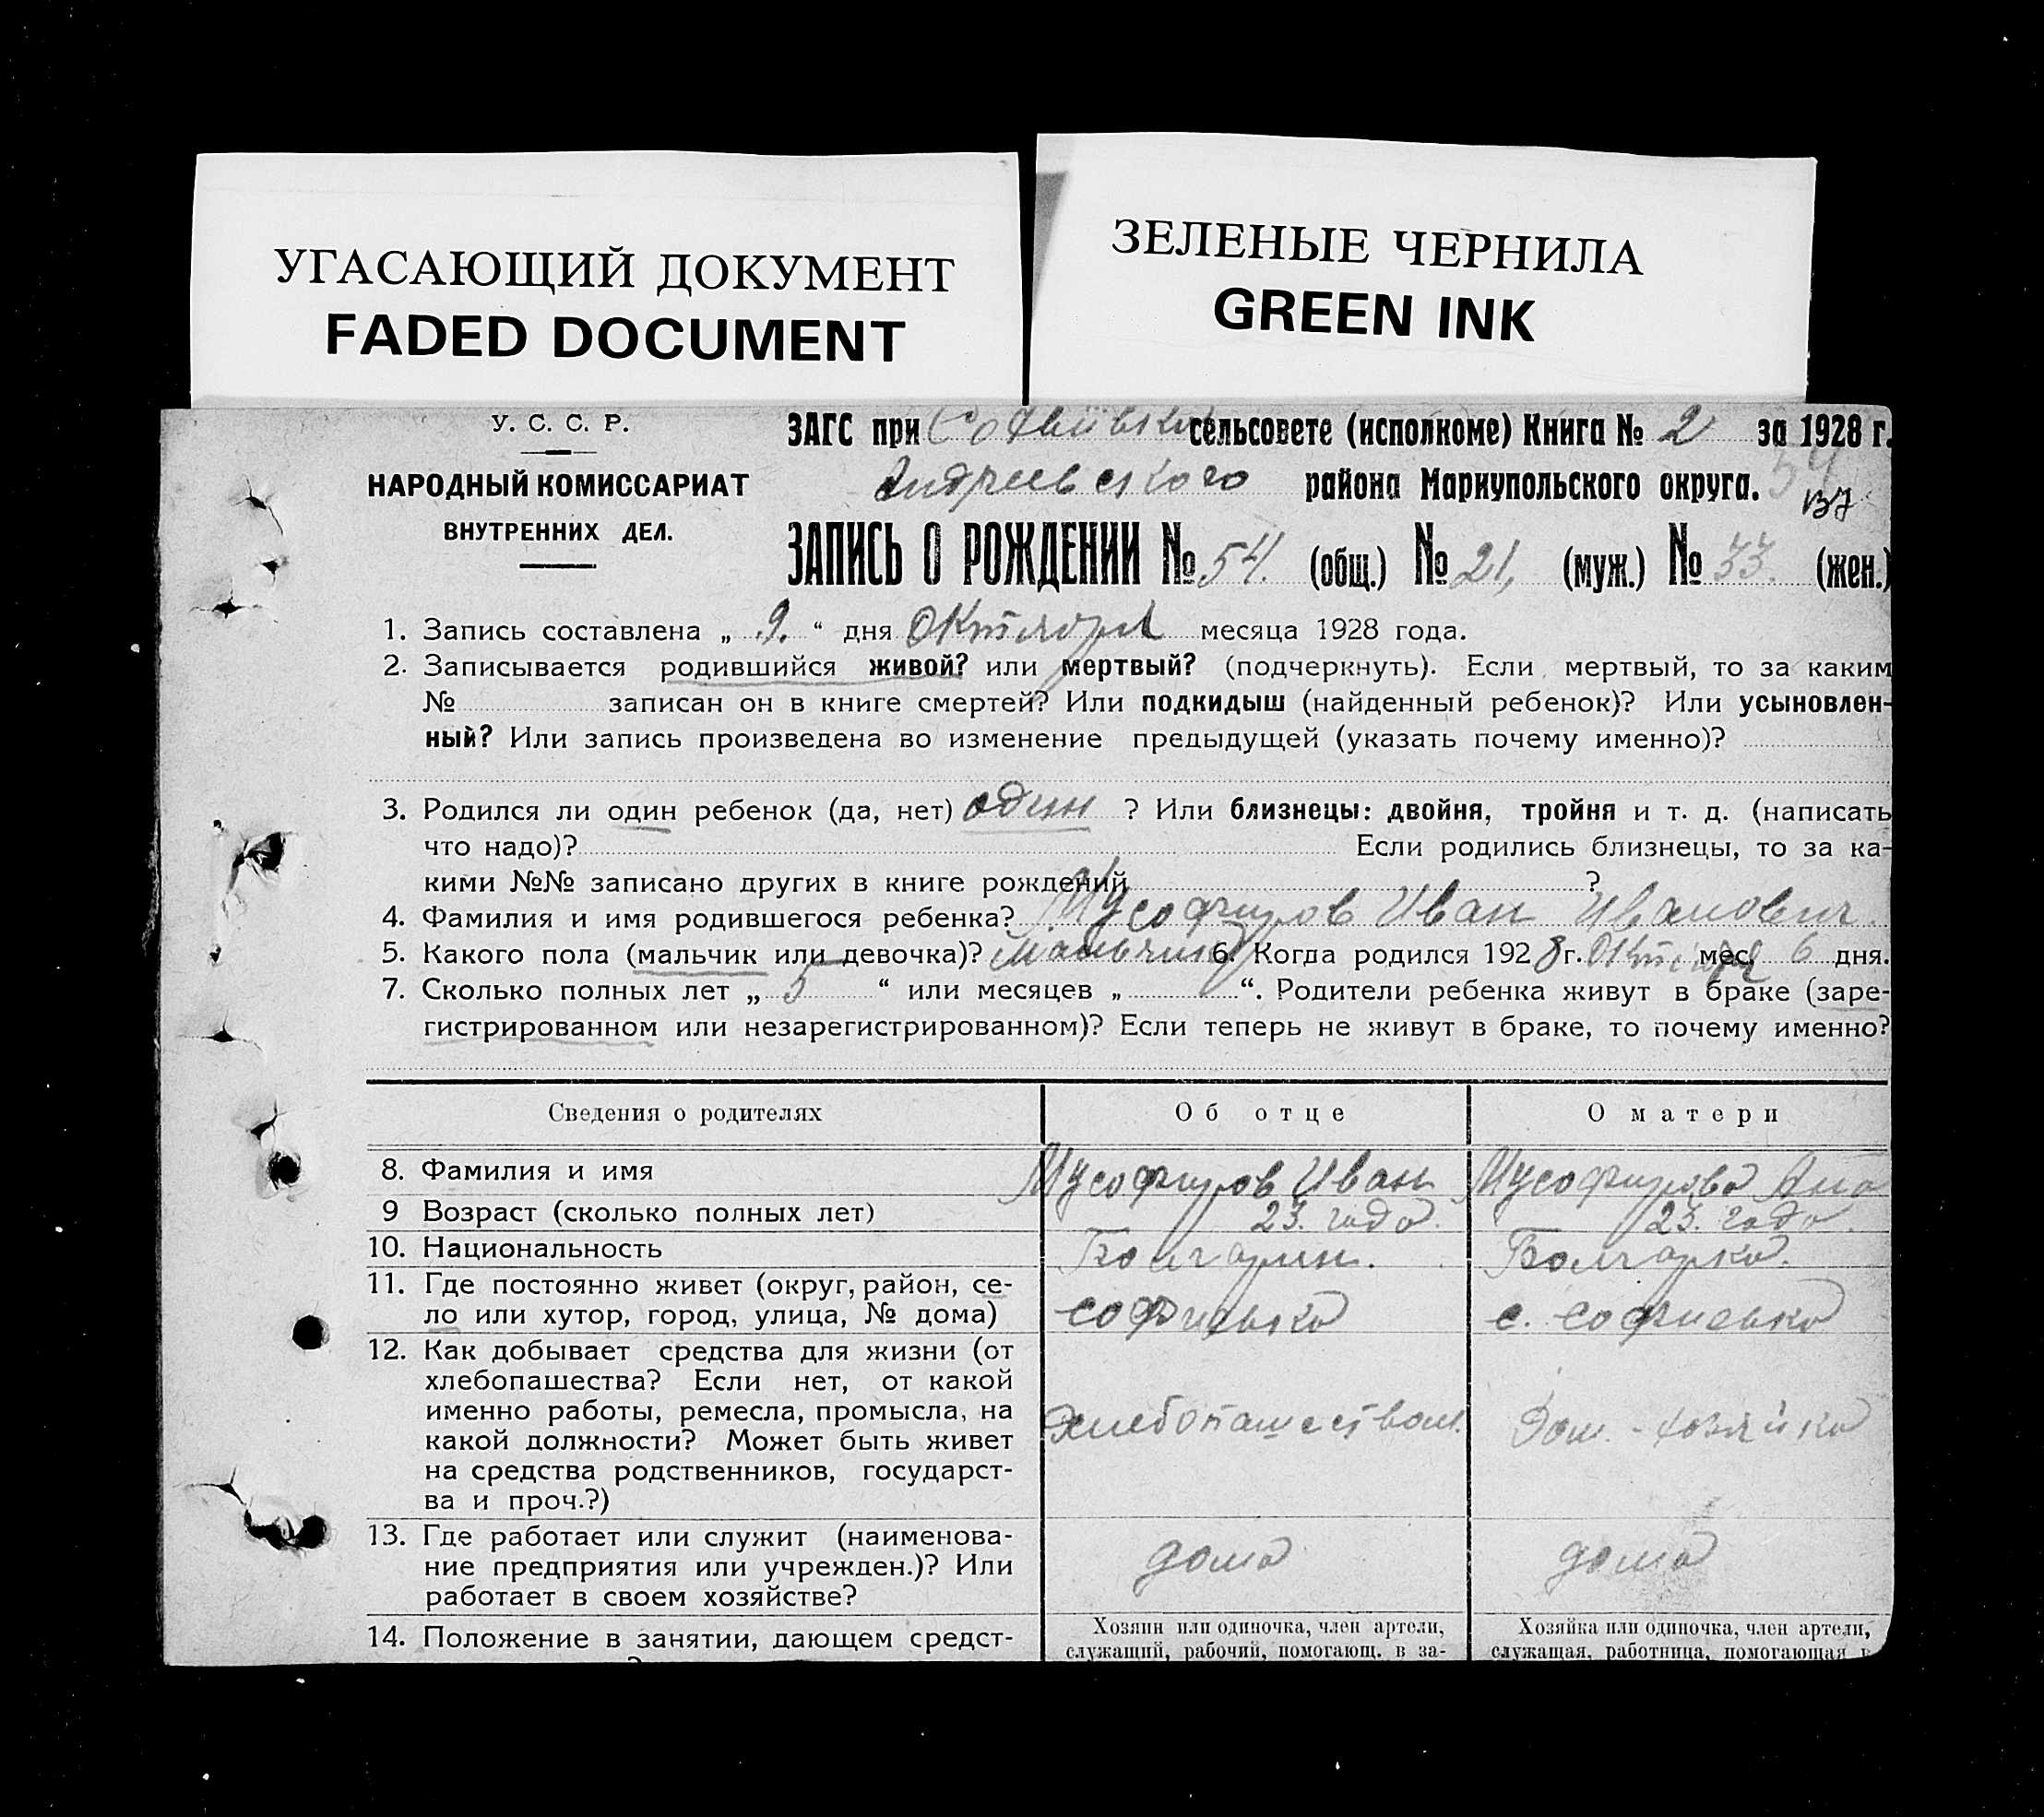 УГАСАЮЩИЙ ДОКУМЕНТ
FADED DOCUMENT
ЗЕЛЕНЫЕ ЧЕРНИЛА
GREEN INK
У. С. С. Р.
НАРОДНЫЙ КОМИССАРИАТ
ВНУТРЕННИХ ДЕЛ.
ЗАГС при сельсовете (исполкоме) Книга № 2 за 1928 г.
Андреевского района Мариупольского округа.
137
ЗАПИСЬ О РОЖДЕНИИ № 54. (общ.) № 21, (муж.) № 33. (жен.)
1. Запись составлена „ 9. “ дня Октября месяца 1928 года.
2. Записывается родившийся живой? или мертвый? (подчеркнуть). Если мертвый, то за каким
№ записан он в книге смертей? Или подкидыш (найденный ребенок)? Или усыновлен-
ный? Или запись произведена во изменение предыдущей (указать почему именно)?
3. Родился ли один ребенок (да, нет) один ? Или близнецы: двойня, тройня и т. д. (написать
что надо)? Если родились близнецы, то за ка-
кими №№ записано других в книге рождений ?
4. Фамилия и имя родившегося ребенка? Мусофиров Иван Иванович.
5. Какого пола (мальчик или девочка)? Мальчик 6. Когда родился 1928 г. Октября мес. 6 дня.
7. Сколько полных лет „ 5 “ или месяцев „ “. Родители ребенка живут в браке (заре-
гистрированном или незарегистрированном)? Если теперь не живут в браке, то почему именно?
Сведения о родителях Об отце О матери
8. Фамилия и имя Мусофиров Иван Мусофирова Ана
9 Возраст (сколько полных лет) 23. года. 23. года.
10. Национальность Болгарин. Болгарка.
11. Где постоянно живет (округ, район, се-
ло или хутор, город, улица, № дома) софиевка с. софиевка
12. Как добывает средства для жизни (от
хлебопашества? Если нет, от какой
именно работы, ремесла, промысла, на
какой должности? Может быть живет
на средства родственников, государст-
ва и проч.?)
хлебопашеством. Дом.-хозяйка
13. Где работает или служит (наименова-
ние предприятия или учрежден.)? Или
работает в своем хозяйстве?
дома дома
14. Положение в занятии, дающем средст-
Хозяин или одиночка, член артели,
служащий, рабочий, помогающ. в за-
Хозяйка или одиночка, член артели,
служащая, работница, помогающая